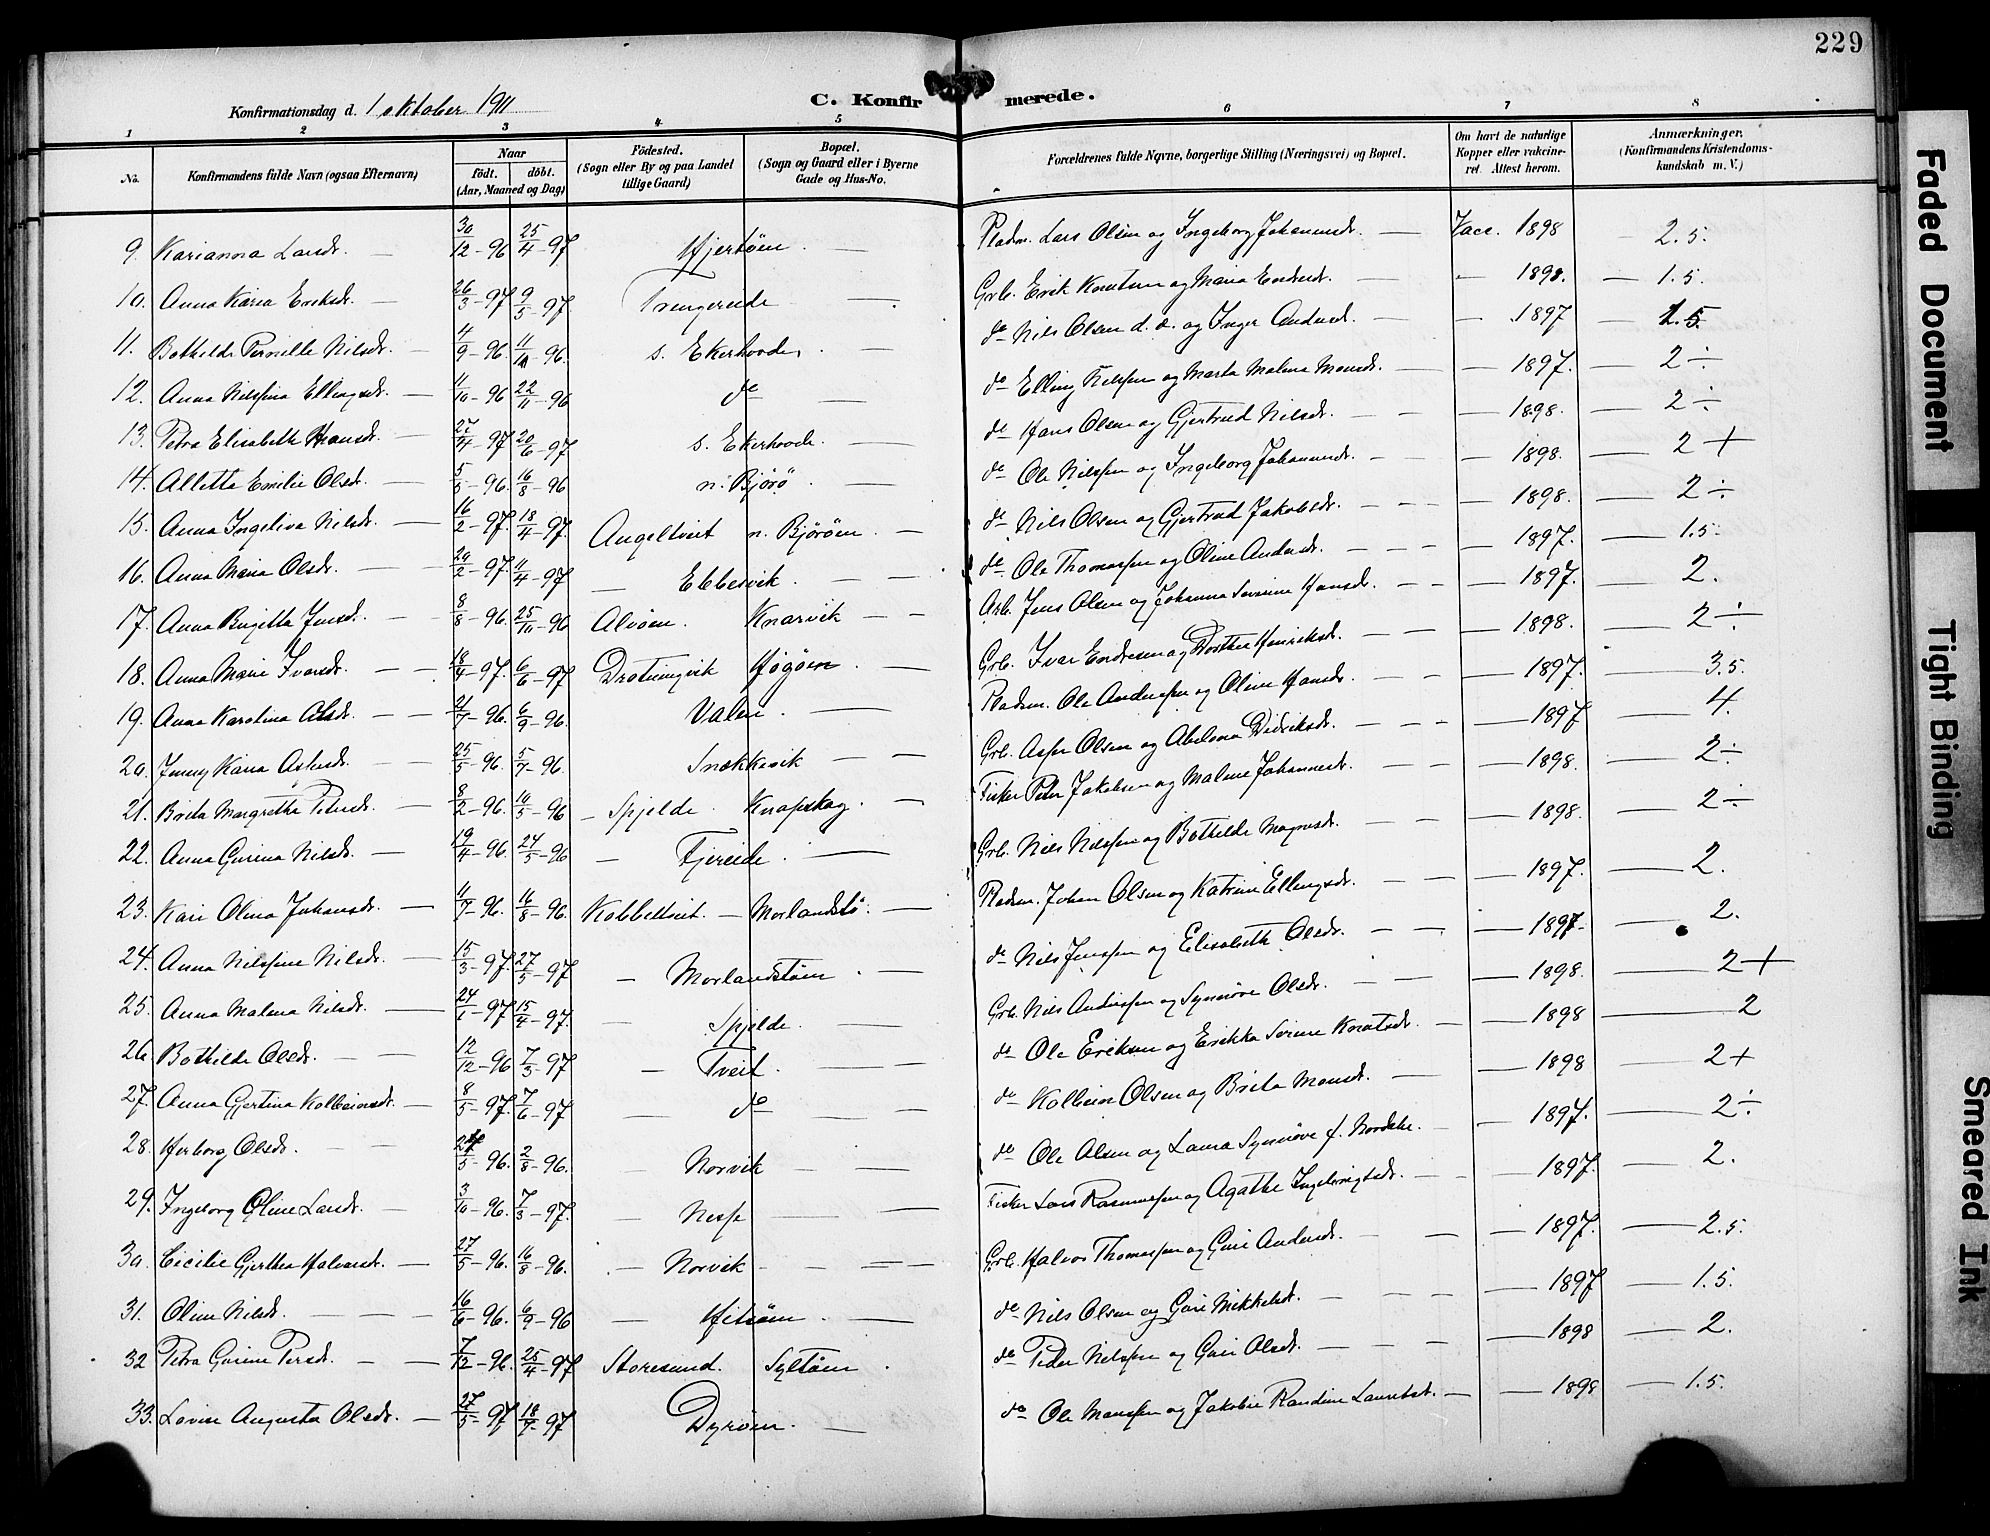 229
Konfirmationsdag d. 1 oktober 1911
C. Konfirmerede.
1 2 3 4 5 6 7 8
No. Konfirmandens fulde Navn (ogsaa Efternavn) Naar født. døbt. (Aar, Maaned og Dag) Fødested. (Sogn eller By og paa Landet tillige Gaard) Bopæl. (Sogn og Gaard eller i Byerne Gade og Hus-No. Forældrenes fulde Navne, borgerlige Stilling (Næringsvei) og Bopæl. Om havt de naturlige Kopper eller vaccineret. Attest herom. Anmærkninger. (Konfirmandens Kristendomskundskab m. V.)
9. Karianna Larsdr. — 30/12-96 25/4-97 Hjertøen — Pladsm. Lars Olsen og Ingeborg Johannesdr. — Vacc. 1898 2.5.
10. Anna Karia Eriksdr. — 26/3-97 9/5-97 Trengereide — Grb. Erik Knutsen og Maria Endresdr. — 1898. — 1.5.
11. Bothilde Pernille Nilsdr. — 4/9-96 11/10-96. s. Ekerhovde — do Nils Olsen d. e. og Inger Andersd. — 1897 — 1.5.
12. Anna Nilssina Ellingsdr. — 11/10-96 22/11-96 do — do Elling Nilssen og Marta Malena Monsdr. — 1897. — 2÷
13. Petra Elisabeth Hansdr. — 27/4-97 20/6-97 s. Ekerhovde — do Hans Olsen og Gjertrud Nilsdr. — 1898. — 2÷
14. Alletta Emilie Olsdr. — 5/5-96. 16/8-96 n. Bjørø — do Ole Nilssen og Ingeborg Johannesdr. — 1898. — 2+
15. Anna Ingeliva Nilsdr. — 16/2-97. 18/4-97. Angeltveit n. Bjørøen — do Nils Olsen og Gjertrud Jakobsdr. — 1898. — 2÷
16. Anna Maria Olsdr. — 20/2-97. 11/4-97 — Ebbesvik — do Ole Thomassen og Oline Andersdr. — 1897. — 1.5.
17. Anna Birgitta Jensd. — 8/8-96. 25/10-96 Alvøen. Knarvik — Arb. Jens Olsen og Johanna Severine Hansdr. — 1897. — 2.
18. Anna Marie Ivarsdr. — 18/4-97. 6/6-97 Drotningvik Høgøen — Grb. Ivar Endresen og Dorthea Henriksdr. — 1898. — 2÷
19. Anna Karolina Olsdr. — 21/7-96. 6/9-96. Valen — Pladsm. Ole Anderssen og Oline Hansdr. — 1897. — 3.5.
20. Jenny Karia Aslersdr. — 25/5-96. 5/7-96. Snekkevik — Grb. Olsen og Abelona Didriksdr. — 1897 — 4.
21. Brita Margretha Petersdr. — 8/2-96. 10/5-96 — Spjelde Knapskog — Fisker Peter Jakobsen og Malene Johannesdr. — 1898. — 2÷
22. Anna Gurina Nilsdr. — 19/4-96. 24/5-96 — Fjereide — Grb. Nils Nilssen og Bothilde Magnesdr. — 1898. — 2÷
23. Kari Olina Johansdr. — 11/7-96. 16/8-96. Kobbeltveit — Morlandstø — Pladsm. Johan Olsen og Katrine Ellingsdr. — 1897. — 2.
24. Anna Nilssine Nilsdr. — 15/3-97. 27/5-97 — Morlandstøen — do Nils Jenssen og Elisabeth Olsdr. — 1897. — 2.
25. Anna Malena Nilsdr. — 24/1-97 15/4-97. — Spjelde — Grb. Nils Anderssen og Synnøve Olsdr. — 1898. — 2+
26. Bothilda Olsdr. — 12/12-96 7/3-97 — Tveit — do Ole Eriksen og Erikka Serine Knutsdr. — 1898 — 2
27. Anna Gjertina Kolbeinsdr. — 8/5-97. 7/6-97 — do — do Kolbein Olsen og Brita Monsdr. — 1898 — 2+
28. Herborg Olsdr. — 24/5-96. 2/8-96. — Norvik — do Ole Olsen og Laura Synnøve f. — 1897. — 2÷
29. Ingeborg Oline Larsdr. — 3/10-96. 7/3-97. — Nesse — Fisker Lars Rasmussen og Agathe Ingebrigtsdr. — 1897. — 2.
30. Cicilie Gjerthea Halvorsdr. — 27/5-96. 16/8-96. — Norvik — Grb. Halvor Thomassen og Guri Andersdr. — 1897. — 2.5.
31. Oline Nilsdr. — 16/6-96. 6/9-96 — Hitsøen — do Nils Olsen og Guri Mikkelsdr. — 1897 — 1.5.
32 Petra Gurine Persdr. — 7/12-96. 25/4-97 Storesund. Syltøen — do Peder Nilssen og Guri Olsdr. — 1898 — 2.
33. Lovise Augusta Olsdr. — 27/5-97 18/7-97 Dyrøen. — do Ole Monssen og Jakobie Randine — 1898 — 1.5.
Faded Document
Tight Binding
Smeared Ink